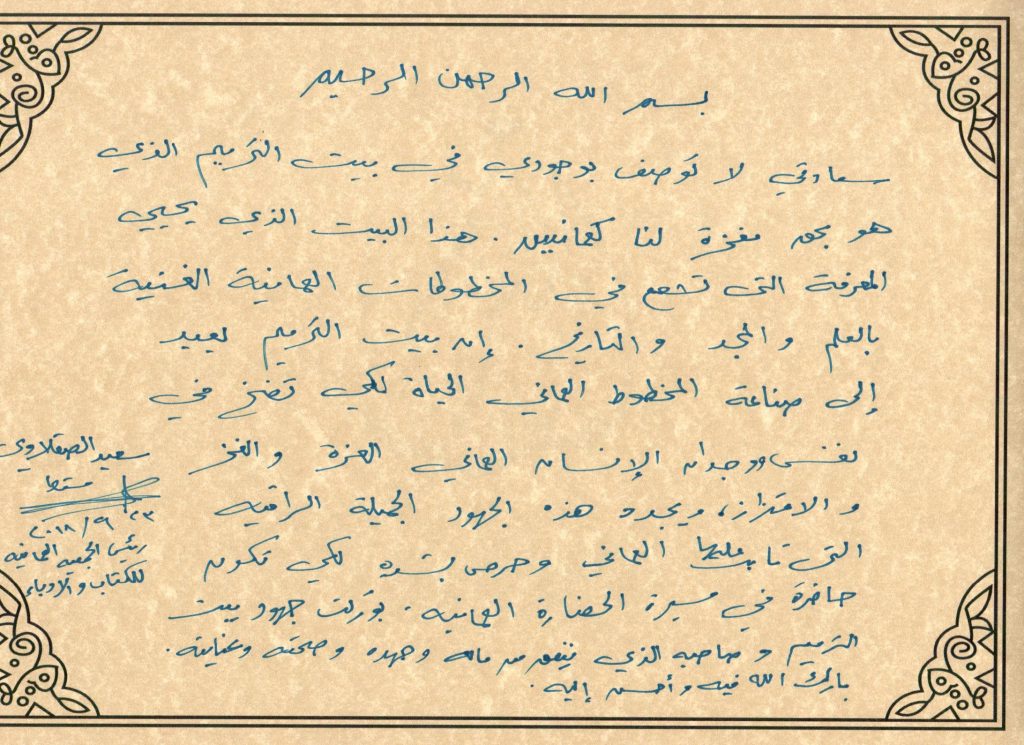 بسم الله الرحمن الرحيم
سعادتي لا توصف بوجودي في بيت الترميم الذي
هو بحق مفخرة لنا كعمانيين. هذا البيت الذي يحيي
المعرفة التي تشع في المخطوطات العمانية الغنية
بالعلم والمجد والتاريخ. إن بيت الترميم يعيد
إلى صناعة المخطوط العماني الحياة لكي تضخ في
نفس ووجدان الإنسان العماني العزة والفخر
والاعتزاز، وبجد هذه الجهود الجميلة الراقية
التي العماني وحرص بشدة لكي تكون
حاضرة في مسيرة الحضارة العمانية. بوركت جهود بيت
الترميم وصاحبه الذي ينفق من ماله وجهده وصحته وعنايته.
بارك الله فيه وأحسن إليه.
سعيد الصقلاوي
مسقط
٢٣ /٩/ ٢٠١٨
رئيس الجمعية العمانية
للكتاب والأدباء